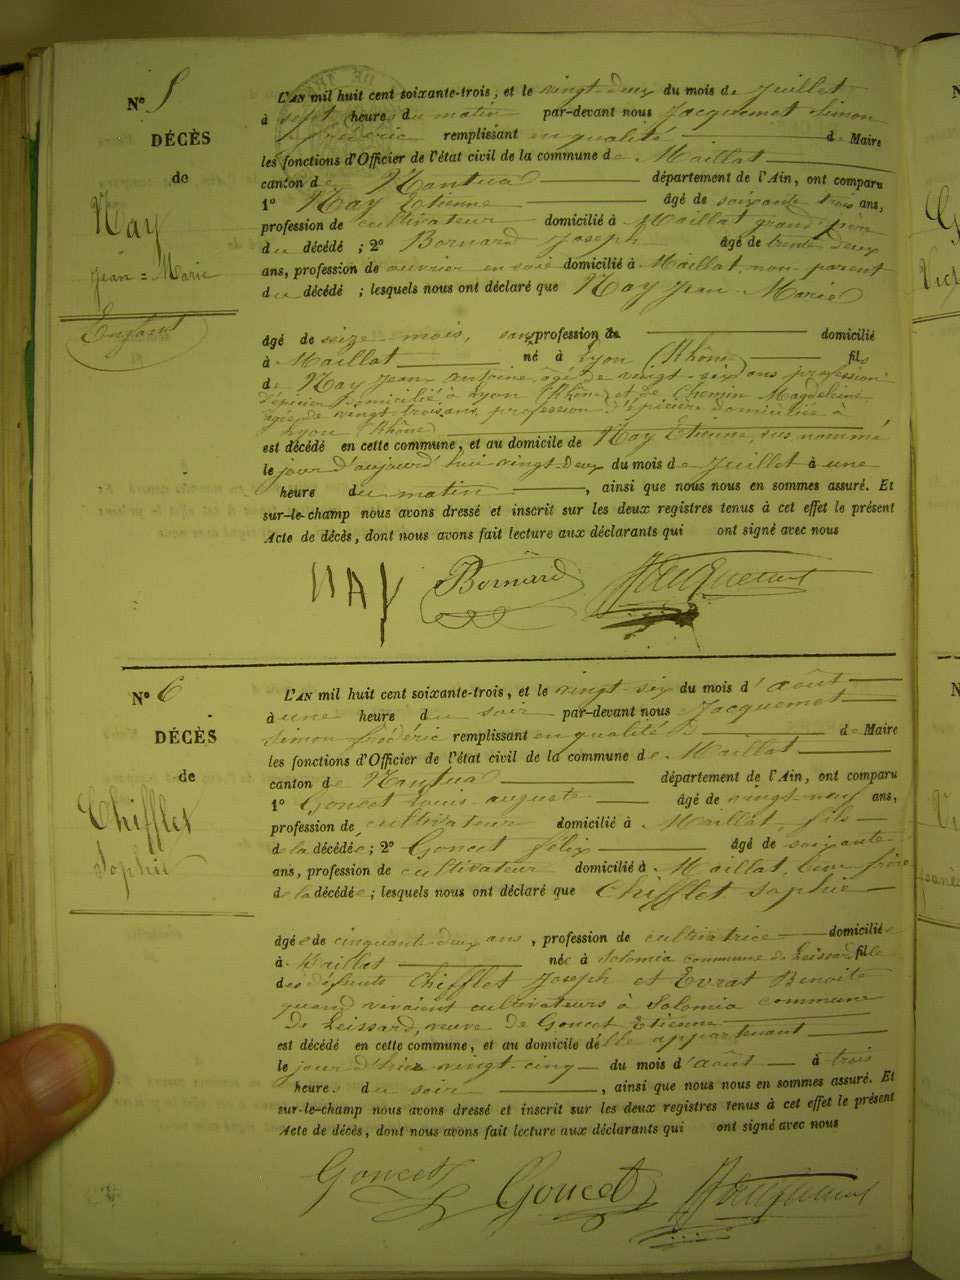 N° 5
DÉCÈS
de
Nay
Jean-Marie
Enfant
L'AN mil huit cent soixante-trois, et le vingt-deux du mois de Juillet
à sept heure du matin par-devant nous Jacquemet Simon
frédéric remplissant en qualité de Maire
les fonctions d'Officier de l'état civil de la commune de Maillat
canton de Nantua département de l'Ain, ont comparu
1° Nay Etienne âgé de soixante trois ans,
profession de cultivateur domicilié à Maillat grand père
du décédé ; 2° Bornard Joseph âgé de trente deux
ans, profession de ouvrier en soie domicilié à Maillat, non parent
du décédé ; lesquels nous ont déclaré que Nay Jean-Marie
âgé de seize mois, sans profession de domicilié
à Maillat né à Lyon (Rhône) fils
de Nay Jean Antoine, âgé de vingt-six ans profession
d'épicier domicilié à Lyon (Rhône) et de Chemin Magdeleine
âgée de vingt trois ans, profession d'épicière domiciliée à
Lyon (Rhône)
est décédé en cette commune, et au domicile de Nay Etienne, sus nommé
le jour d'aujourd'hui vingt-deux du mois de Juillet à une
heure du matin , ainsi que nous nous en sommes assuré. Et
sur-le-champ nous avons dressé et inscrit sur les deux registres tenus à cet effet le présent
Acte de décès, dont nous avons fait lecture aux déclarants qui ont signé avec nous
NAY Bornard Jacquemet
N° 6
DÉCÈS
de
Chifflet
Sophie
L'AN mil huit cent soixante-trois, et le vingt-six du mois d'août
à une heure du soir par-devant nous Jacquemet
Simon frédéric remplissant en qualité de Maire
les fonctions d'Officier de l'état civil de la commune de Maillat
canton de Nantua département de l'Ain, ont comparu
1° Goncet Louis auguste âgé de vingt-neuf ans,
profession de cultivateur domicilié à Maillat, fils
de la décédée ; 2° Goncet félix âgé de soixante
ans, profession de cultivateur domicilié à Maillat, beau frère
de la décédée ; lesquels nous ont déclaré que Chifflet Sophie
âgée de cinquante-deux ans , profession de cultivatrice domiciliée
à Maillat née à Solomia commune de Leissard fille
des défunts Chifflet Joseph et Evrat Benoite
quand vivaient cultivateurs à Solomia commune
De Leissard, veuve de Goncet Etienne
est décédé en cette commune, et au domicile de lle appartenant
le jour d'hier vingt-cinq du mois d'août à trois
heures du soir , ainsi que nous nous en sommes assuré. Et
sur-le-champ nous avons dressé et inscrit sur les deux registres tenus à cet effet le présent
Acte de décès, dont nous avons fait lecture aux déclarants qui ont signé avec nous
Goncet Goncet Jacquemet